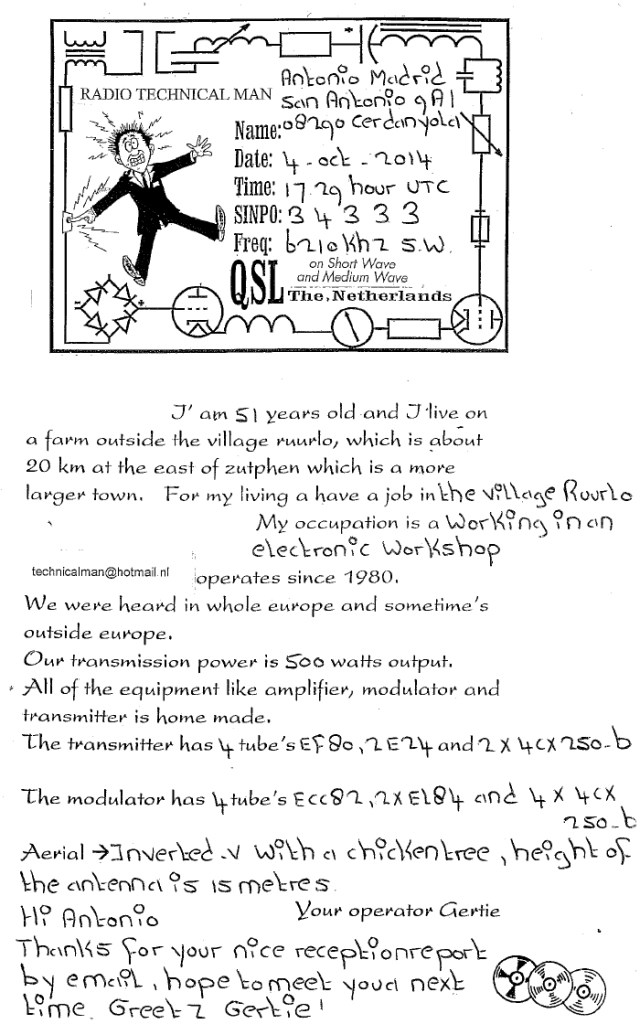 Antonio Madrid
RADIO TECHNICAL MAN
San Antonio 9A1
Name: 08290 Cerdanyola
Date: 4-oct-2014
Time: 17.29 hour UTC
SINPO: 3 4 3 3 3
Freq: 6210 Khz S.W.
on Short Wave
and Medium Wave
QSL The, Netherlands
I' am 51 years old and I live on
a farm outside the village ruurlo, which is about
20 km at the east of zutphen which is a more
larger town. For my living a have a job in the village Ruurlo
My occupation is a Working in an
electronic Workshop
technicalman@hotmail.nl operates since 1980.
We were heard in whole europe and sometime's
outside europe.
Our transmission power is 500 watts output.
All of the equipment like amplifier, modulator and
transmitter is home made.
The transmitter has 4 tube's EF80, 2E24 and 2 X 4CX250-b
The modulator has 4 tube's Ecc82, 2XEl84 and 4 X 4CX
250-b
Aerial →Inverted-V with a chickentree, height of
the antenna is 15 metres
Hi Antonio Your operator Gertie
Thanks for your nice receptionreport
by email, hope to meet you a next
time. Greetz Gertie!